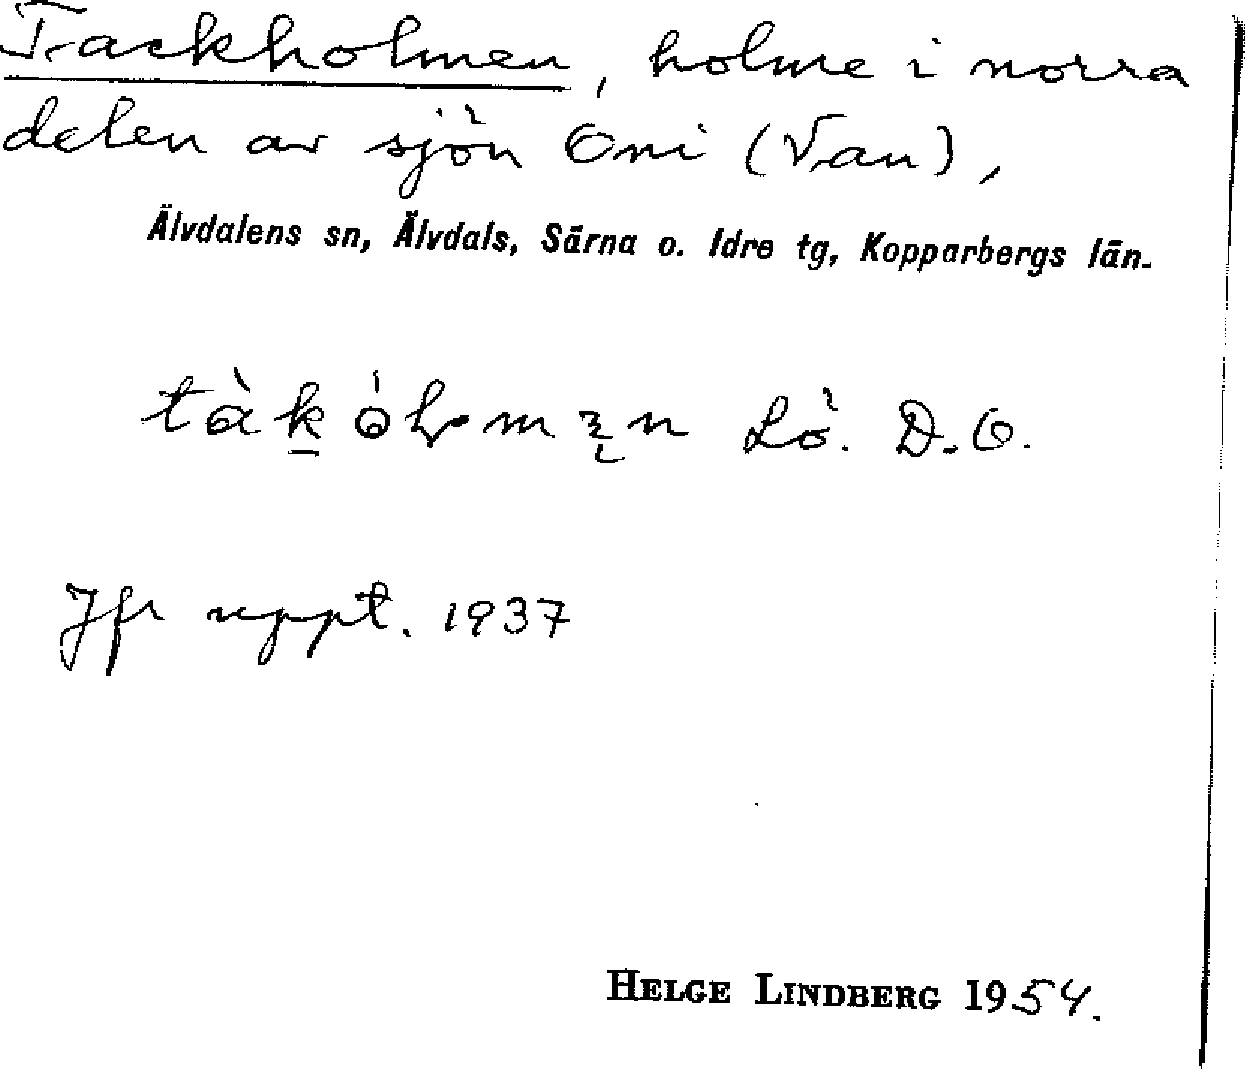 Tackholmen, holme i norra
delen av sjön Oni (Van),
Älvdalens sn, Älvdals, Särna o. Idre tg, Kopparbergs län.
Lö. D.O.
Jfr uppt. 1937
HELGE LINDBERG 1954.